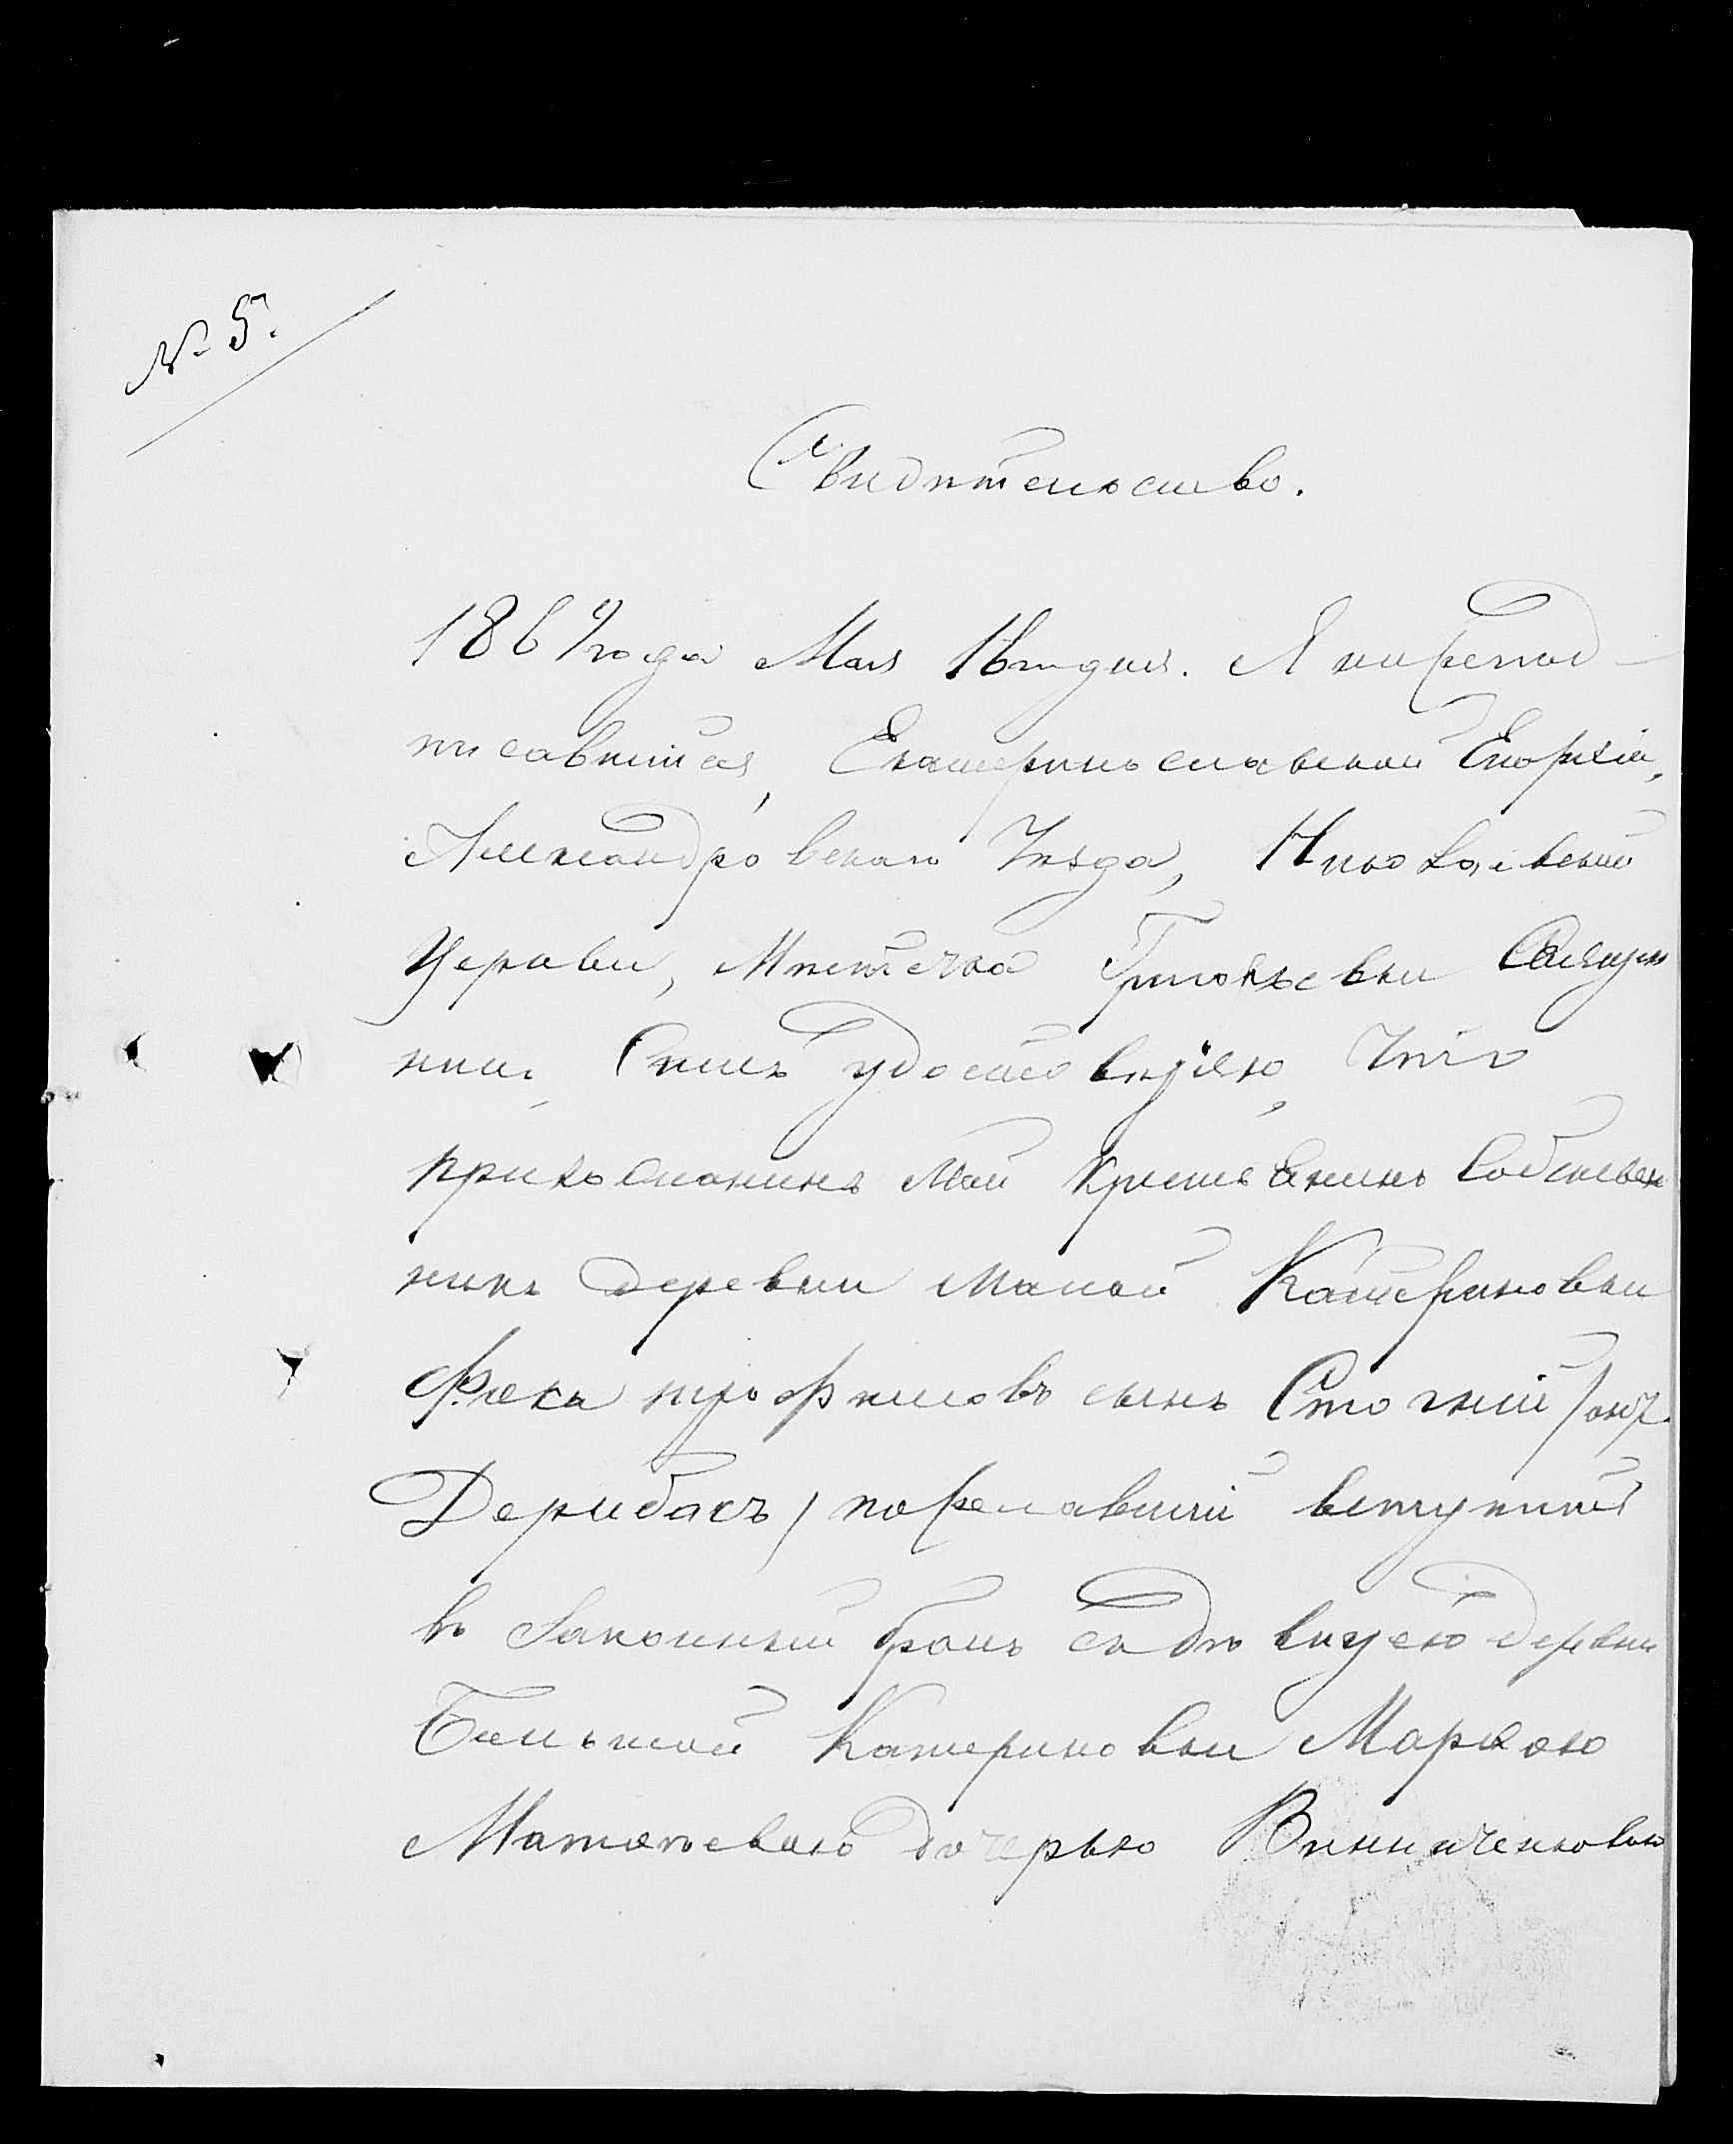 № 5.
Свидѣтельство.
1869 года Мая 16го дня. Я нижепод-
писавшійся, Екатеринославской Епархіи,
Александровскаго Уѣзда, Николаевской
Церкви, Мѣстечка Григорьевки Священ
никъ, Симъ удостовѣряю, Что
прихожанинъ мой крестьянинъ Собствен
никъ деревни Малой Катериновки
Фока Трофимовъ сынъ Стогній /онъ же
Дерибасъ/ пожелавшій вступить
въ Законный бракъ съ дѣвицею деревни
Большой Катериновки Марѳою
Матвѣевою дочерью Винниченковою